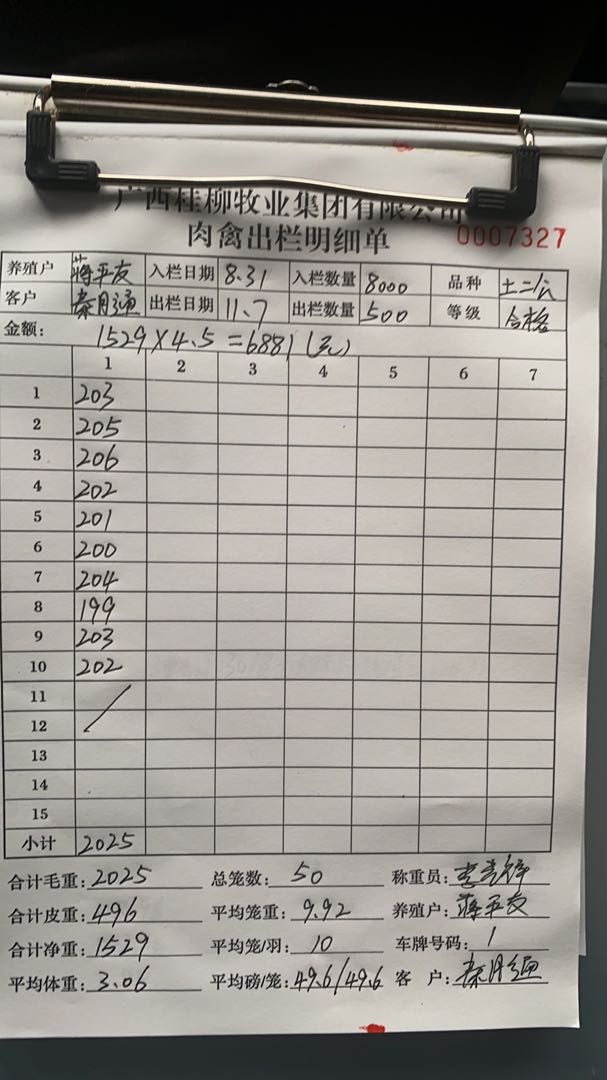 广西桂柳牧业集团有限公司
肉禽出栏明细单 0007327
养殖户 蒋平友 入栏日期 8.31 入栏数量 8000 品种 土二公
客户 秦月通 出栏日期 11.7 出栏数量 500 等级 合格
金额: 1529×4.5=6881(元)
1 2 3 4 5 6 7
1 203
2 205
3 206
4 202
5 201
6 200
7 204
8 199
9 203
10 202
11
12
13
14
15
小计 2025
合计毛重:2025 总笼数:50 称重员:
合计皮重:496 平均笼重:9.92 养殖户:蒋平友
合计净重:1529 平均笼/羽:10 车牌号码:1
平均体重:3.06 平均磅/笼:49.6/49.6 客 户:秦月通